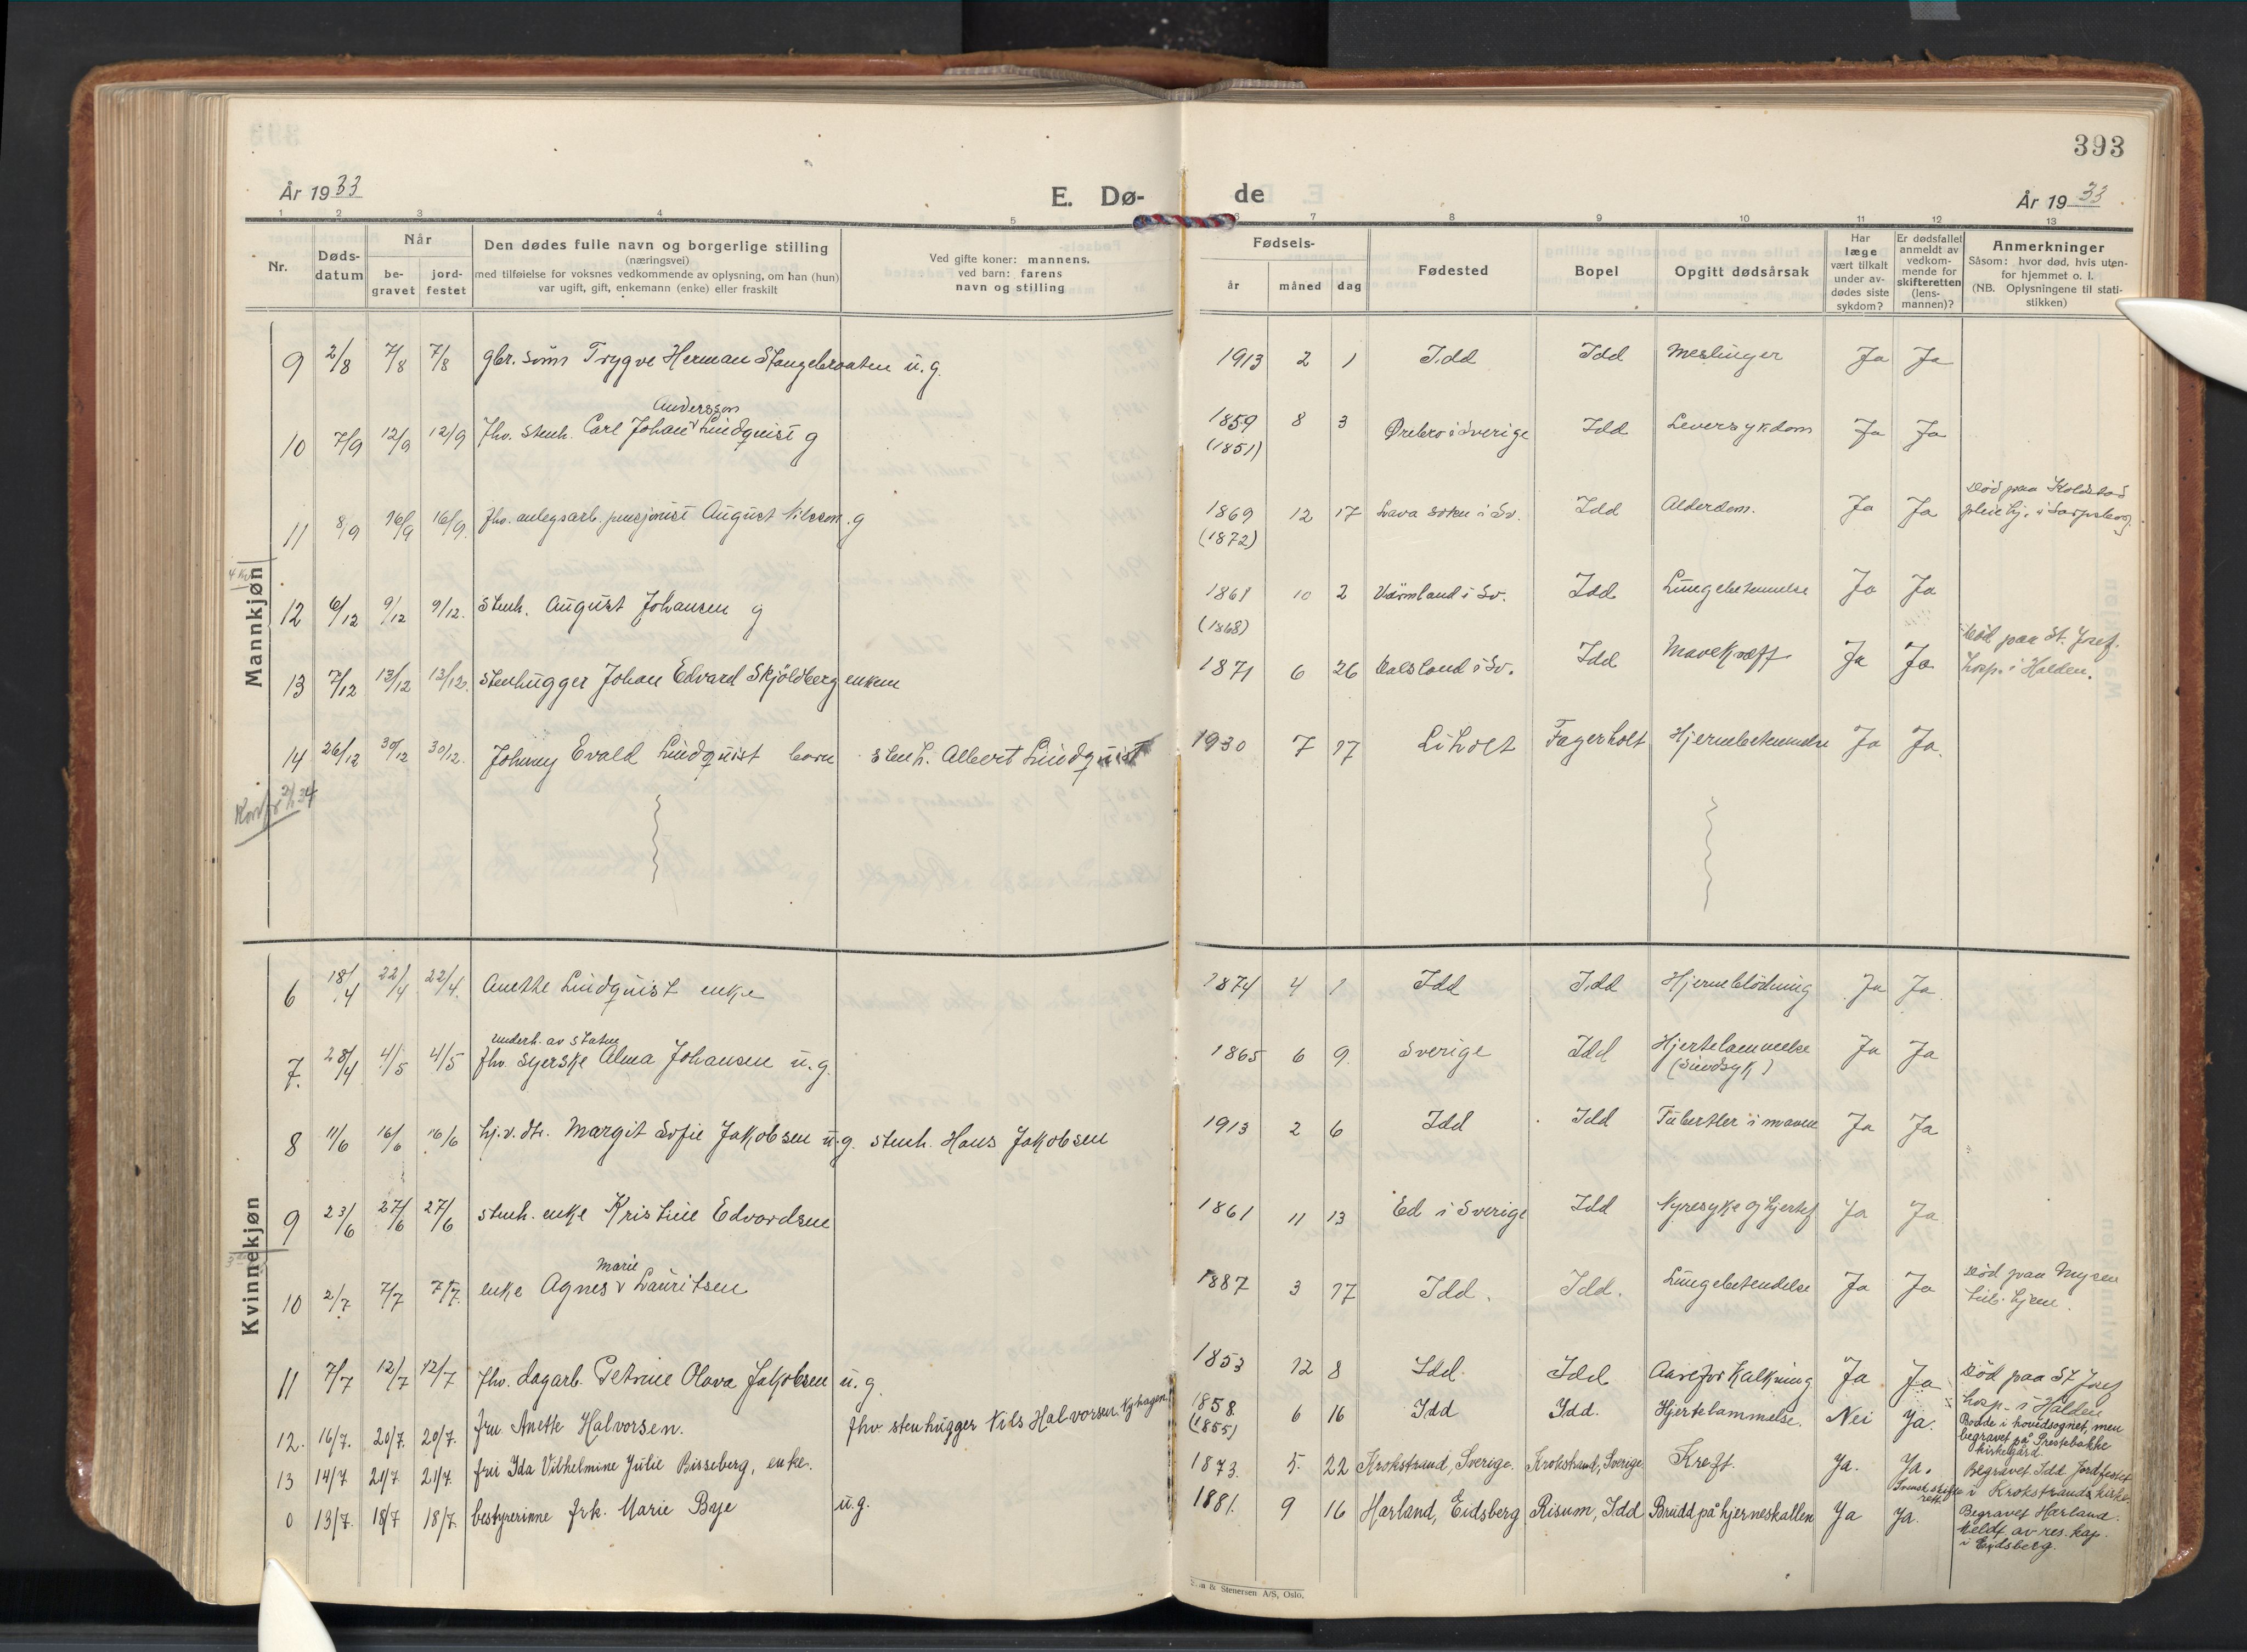 393
År 1933 E. Dø- de År 1933
1 2 3 4 5 6 7 8 9 10 11 12 13
Nr.
Døds-
datum
Når
be-
gravet
jord-
festet
Den dødes fulle navn og borgerlige stilling
(næringsvei)
med tilføielse for voksnes vedkommende av oplysning, om han (hun)
var ugift, gift, enkemann (enke) eller fraskilt
Ved gifte koner: mannens,
ved barn: farens
navn og stilling
Fødsels-
år måned dag
Fødested
Bopel
Opgitt dødsårsak
Har
læge
vært tilkalt
under av-
dødes siste
sykdom?
Er dødsfallet
anmeldt av
vedkom-
mende for
skifteretten
(lens-
mannen)?
Anmerkninger
Såsom: hvor død, hvis uten-
for hjemmet o. l.
(NB. Oplysningene til stati-
stikken)
Mannkjøn
9 2/8 7/8 7/8 gbr. sønn Trygve Herman Stangebraaten u.g. 1913 2 1 Idd Idd Meslinger Ja Ja
Andersson
10 7/9 12/9 12/9 fhv. stenh. Carl Johan v Lindquist g 1859 8 3 Ørebro i Sverige Idd Leversykdom Ja Ja
(1851)
11 8/9 16/9 16/9. fhv. anlegsarb. pensjonist August Nilsson. g 1869 12 17 Idd Alderdom. Ja Ja
(1872)
Død paa Kolstad
pleie hj. i Sarpsborg.
12 6/12 9/12 9/12. stenh. August Johansen g 1861 10 2 Värmland i Sv. Idd Lungebetennelse Ja Ja
(1868)
13 7/12 13/12 13/12. stenhugger Johan Edvard Skjöldberg enkem 1871 6 26 Dalsland i Sv. Idd Mavekræft Ja Ja
Död paa St. Josef.
hosp. i Halden.
14 26/12 30/12 30/12. Johnny Evald Lindquist barn stenh. Albert Lindquist 1930 7 17 Liholt Fagerholt Hjernebetennelse Ja Ja.
2/1 34
Kvinnekjøn
6 18/4 22/4 22/4. Anette Lindquist enke 1874 4 1 Idd Idd Hjerneblödning Ja Ja
underh. av staten
7. 28/4 4/5 4/5 fhv. syerske Alma Johansen u.g. 1865 6 9. Sverige Idd Hjertelammelse Ja Ja
(sindsyk)
8 11/6 16/6 16/6 hj.v. dtr. Margit Sofie Jakobsen u.g. stenh. Hans Jakobsen 1913 2 6 Idd Idd Tuberkler i maven Ja Ja
9 23/6 27/6 27/6 stenh. enke Kristine Edvardsen 1861 11 13 Ed i Sverige Idd Nyresyke og hjertef Ja Ja
Marie
10 2/7 7/7 7/7. enke Agnes v Lauritsen 1887 3 17 Idd. Idd. Lungebetendelse Ja Ja
Död paa Mysen
11 7/7 12/7 12/7 fhv. dagarb. Petrine Olava Jakobsen u.g. 1853 12 8 Idd. Idd Aareforkalkning Ja Ja
Död paa St Josef
hosp. i Halden
12. 16/7. 20/7. 20/7. fru Anette Halvorsen. fhv stenhugger Nils Halvorsen. Nyhagen. 1858. 6 16 Idd Idd. Hjertelammelse. Nei Ja.
(1855)
Bodde i hovedsognet, men
begravet på Prestebakke
kirkegård.
13 14/7 21/7 21/7. fru Ida Vilhelmine Julie Bisseberg, enke. 1873. 5. 22 Krokstrand, Sverige. Krokstrand, Sverige. Kreft. Ja. Ja.
Svensk skifte
rett.
Begravet Idd Jordfestet
i Krokstrands kirke.
0 13/7. 18/7 18/7. bestyrerinne frk. Marie Bye u.g. 1881. 9 16 Hærland, Eidsberg Risum, Idd Brudd på hjerneskallen Ja Ja.
Begravet Hærland.
Meldt av res. kap.
i Eidsberg.
& Stenersen A/S, Oslo.